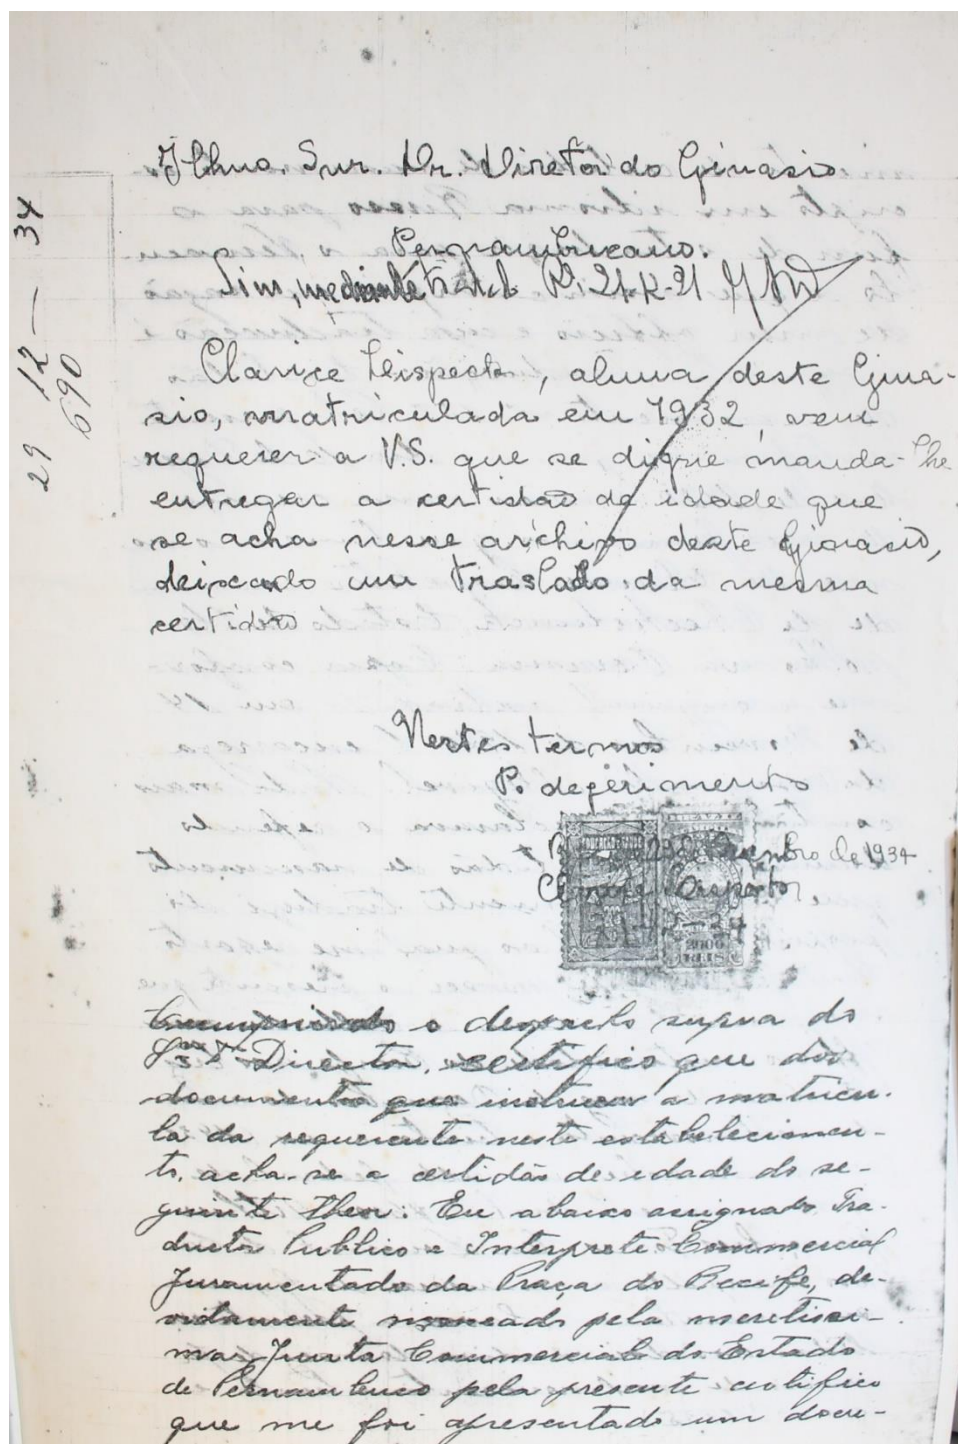 Illmo. Snr. Dr. Diretor do Ginasio
Pernambucano.
Sim, mediante R. 21
Clarice Lispector, aluna deste Gina-
sio, matriculada em 1932, vem
requerer a V.S. que se digne manda-lhe
entregar a certidão de idade que
se acha nesse archivo deste Ginasio,
deixando um traslado da mesma
certidão
Nestes termos
P. deferimento
29 de Dezembro de 1934
Clarice Lispector
2000
REIS
29 — 12 — 34
690
o despacho supra do
Snr. Dr. Director, certifico que dos
documentos que instruem a matricu-
la da requerente neste estabelecimen-
to, acha-se a certidão de edade do se-
guinte theor: Eu abaixo assignado Tra-
ductor Publico e Interprete Commercial
Juramentado da Praça do Recife, de-
vidamente nomeado pela meretissi-
ma Junta Commercial do Estado
de Pernambuco pela presente certifico
que me foi apresentado um docu-